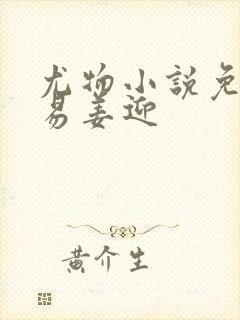 尤物小説免
易姜迎
黄介生